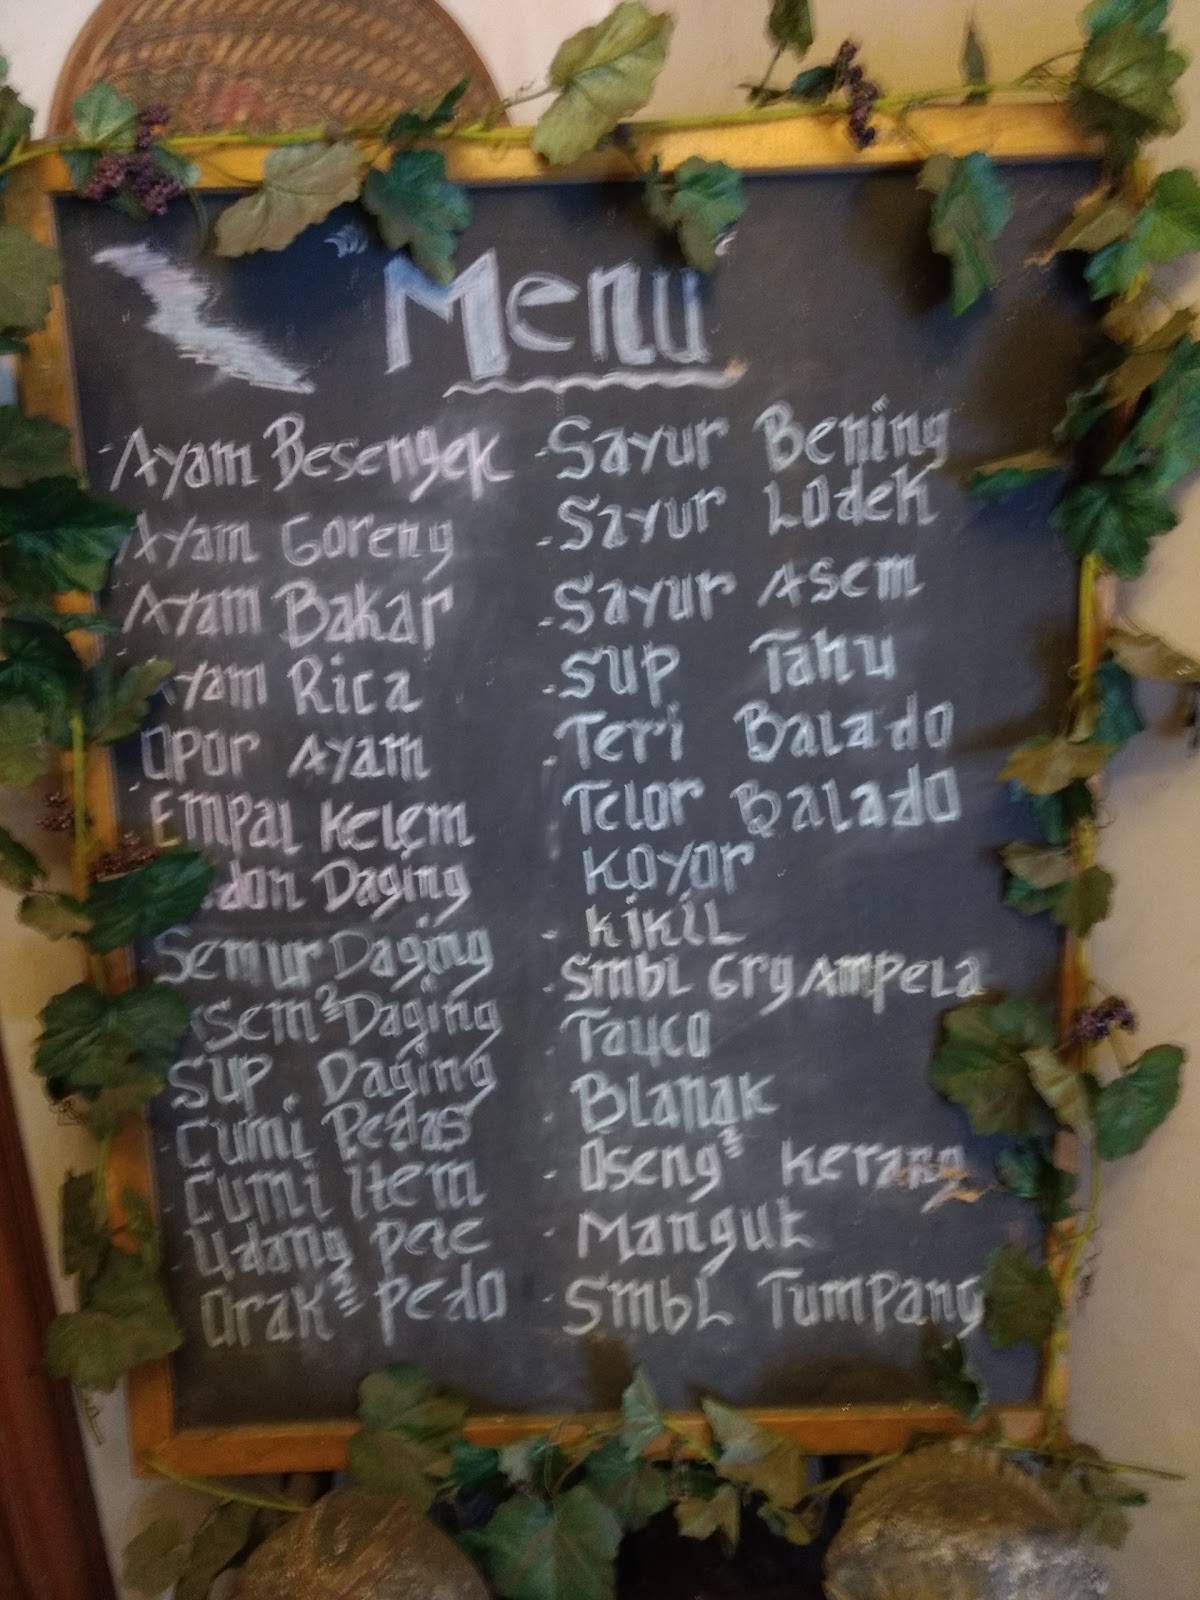 "Menu"
- Ayam Besengek
Ayam Goreng
Ayam Bakar
Ayam Rica
Opor Ayam
Empal Kelem
Daging
Semur Daging
Asem² Daging
Sup. Daging
Cumi Pedas
Cumi Item
Udang Pete
Orak² Pedo
- Sayur Bening
- Sayur Lodek
- Sayur Asem
- Sup Tahu
- Teri Balado
Telor Balado
Koyor
- Kikil
- Smbl Grg Ampela
- Tauco
- Blanak
- Oseng² Kerang
- Mangut
- Smbl Tumpang